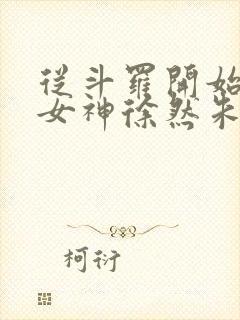 從斗羅開始
女神徐然朱
柯衍